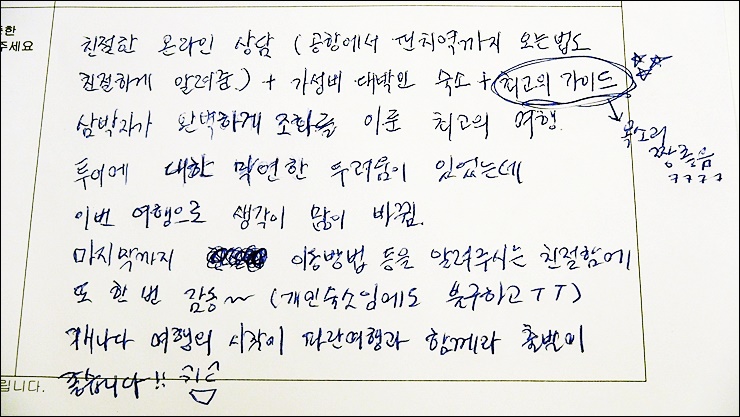 한
주세요
친절한 온라인 상담 (공항에서 전치역까지 오는법도
친절하게 알려줌.) + 가성비 대박인 숙소 + 최고의 가이드 ☆☆☆
→ 목소리
짱좋음
ㅋㅋㅋㅋ
삼박자가 완벽하게 조화를 이룬 최고의 여행.
투어에 대한 막연한 두려움이 있었는데
이번 여행으로 생각이 많이 바뀜.
마지막까지 이동방법 등을 알려주시는 친절함에
또 한번 감동~ (개인숙소임에도 불구하고 ㅜㅜ)
캐나다 여행의 시작이 파란여행과 함께라 출발이
좋습니다!!
립니다.